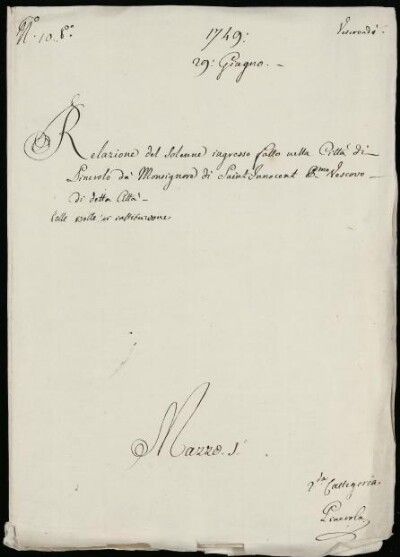 N.º 10. 8.º
Vescovadi
1749:
29: Giugno. -
Relazione del Solenne ingresso fatto nella Città di
Pinerolo da Monsignore di Saint Innocent P.mo Vescovo
di detta Città -
Colle
Mazzo. 1.º
2.da Cattegoria.
Pinerolo